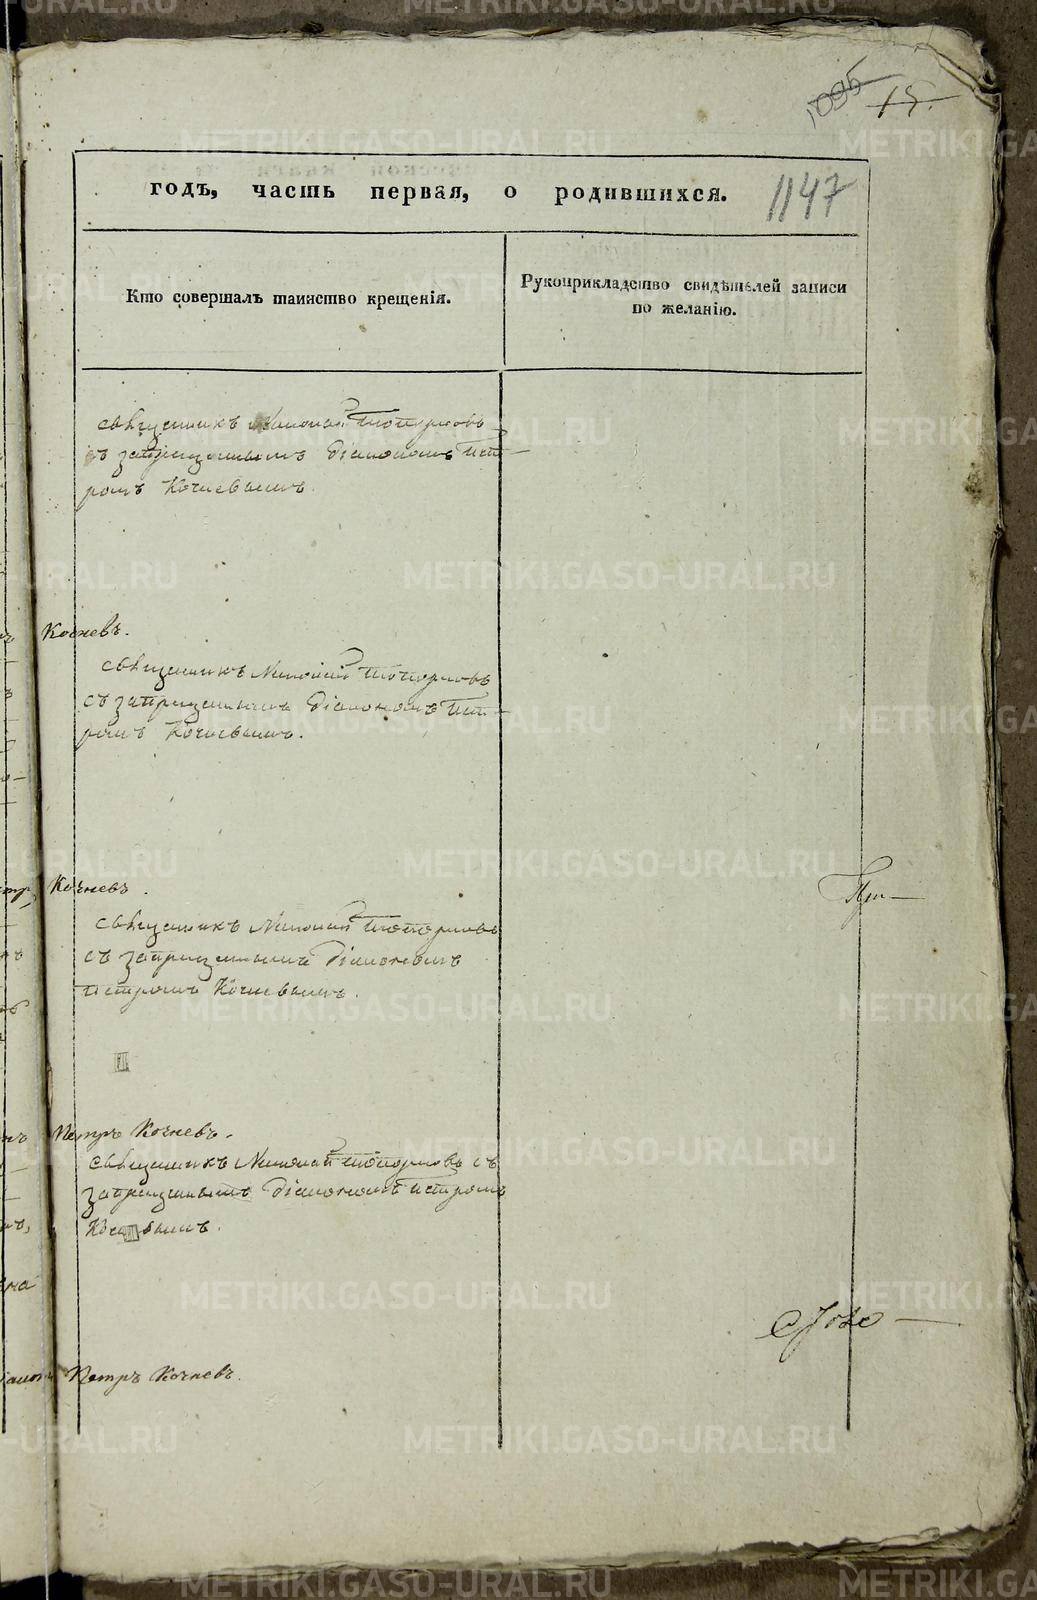 1095 15.
годъ, часть первая, о родившихся. 1147
Кто совершалъ таинство крещенія.
Рукоприкладство свидѣтелей записи
по желанію.
священникъ Николай Топорковъ
съ запрещеннымъ діакономъ Пет-
ромъ Кочневымъ.
Кочневъ.
священникъ Николай Топорковъ
съ запрещеннымъ діакономъ Пет-
ромъ Кочневымъ.
Кочневъ.
При-
священникъ Николай Топорковъ
съ запрещеннымъ діакономъ
Петромъ Кочневымъ.
Петръ Кочневъ.
священникъ Николай Топорковъ съ
запрещеннымъ діакономъ Петромъ
Кочневымъ.
Петръ Кочневъ.
METRIKI.GASO-URAL.RU